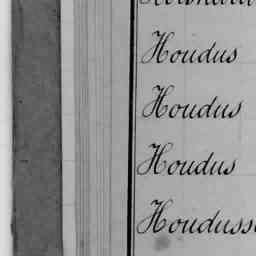 Houdus
Houdus
Houdus
Houduss